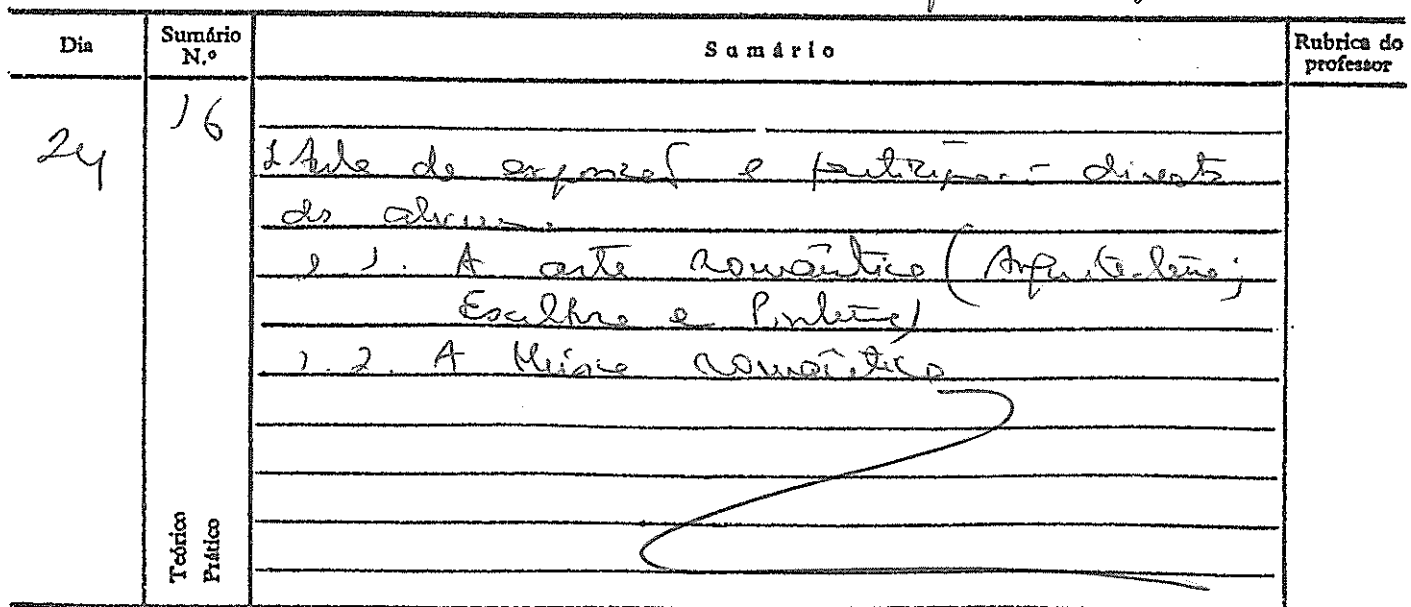 Dia
Sumário N.º
Sumário
Rubrica do professor
24
16
1 Aula de exposição e participação directa
dos alunos.
1.1. A arte romântica (Arquitectura;
Escultura e Pintura)
1.2. A Música romântica
Teórico
Prático